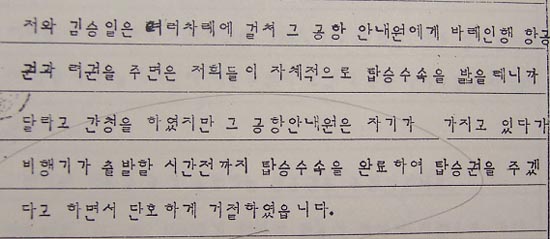 저와 김승일은 여러차례에 걸쳐 그 공항 안내원에게 바레인행 항공
권과 려권을 주면은 저희들이 자체적으로 탑승수속을 밟을테니까
달라고 간청을 하였지만 그 공항안내원은 자기가 가지고 있다가
비행기가 출발할 시간전까지 탑승수속을 완료하여 탑승권을 주겠
다고 하면서 단호하게 거절하였읍니다.